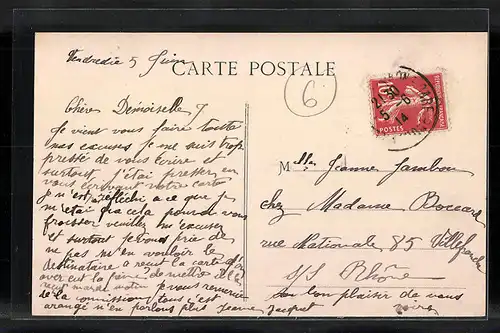 Vendredie 5 Juin
CARTE POSTALE
6
21 30
5 - 6
14
POSTES
Chère Demoiselle
Je vient vous faire toute
mes excuses je me suis trop
pressé de vous écrire et
surtout j'étai presser en
vous écrivant votre carte
je n'est réfléchi a ce que je
m'étai que cela pouvai vous
froisser veuillez m'excuser
et surtout je vous prie de
ne pas m'en vouloir le
destinataire a reçut la carte
avec cut la faire de
je vous remercie
de la commission tous s'est
arrangé n'en parlons plus Jeanne Jacquet
Mlle Jeanne Jambon
chez Madame Boccard
rue Nationale 85 Villefranche
s/s Rhône
au bon plaisir de vous
voire